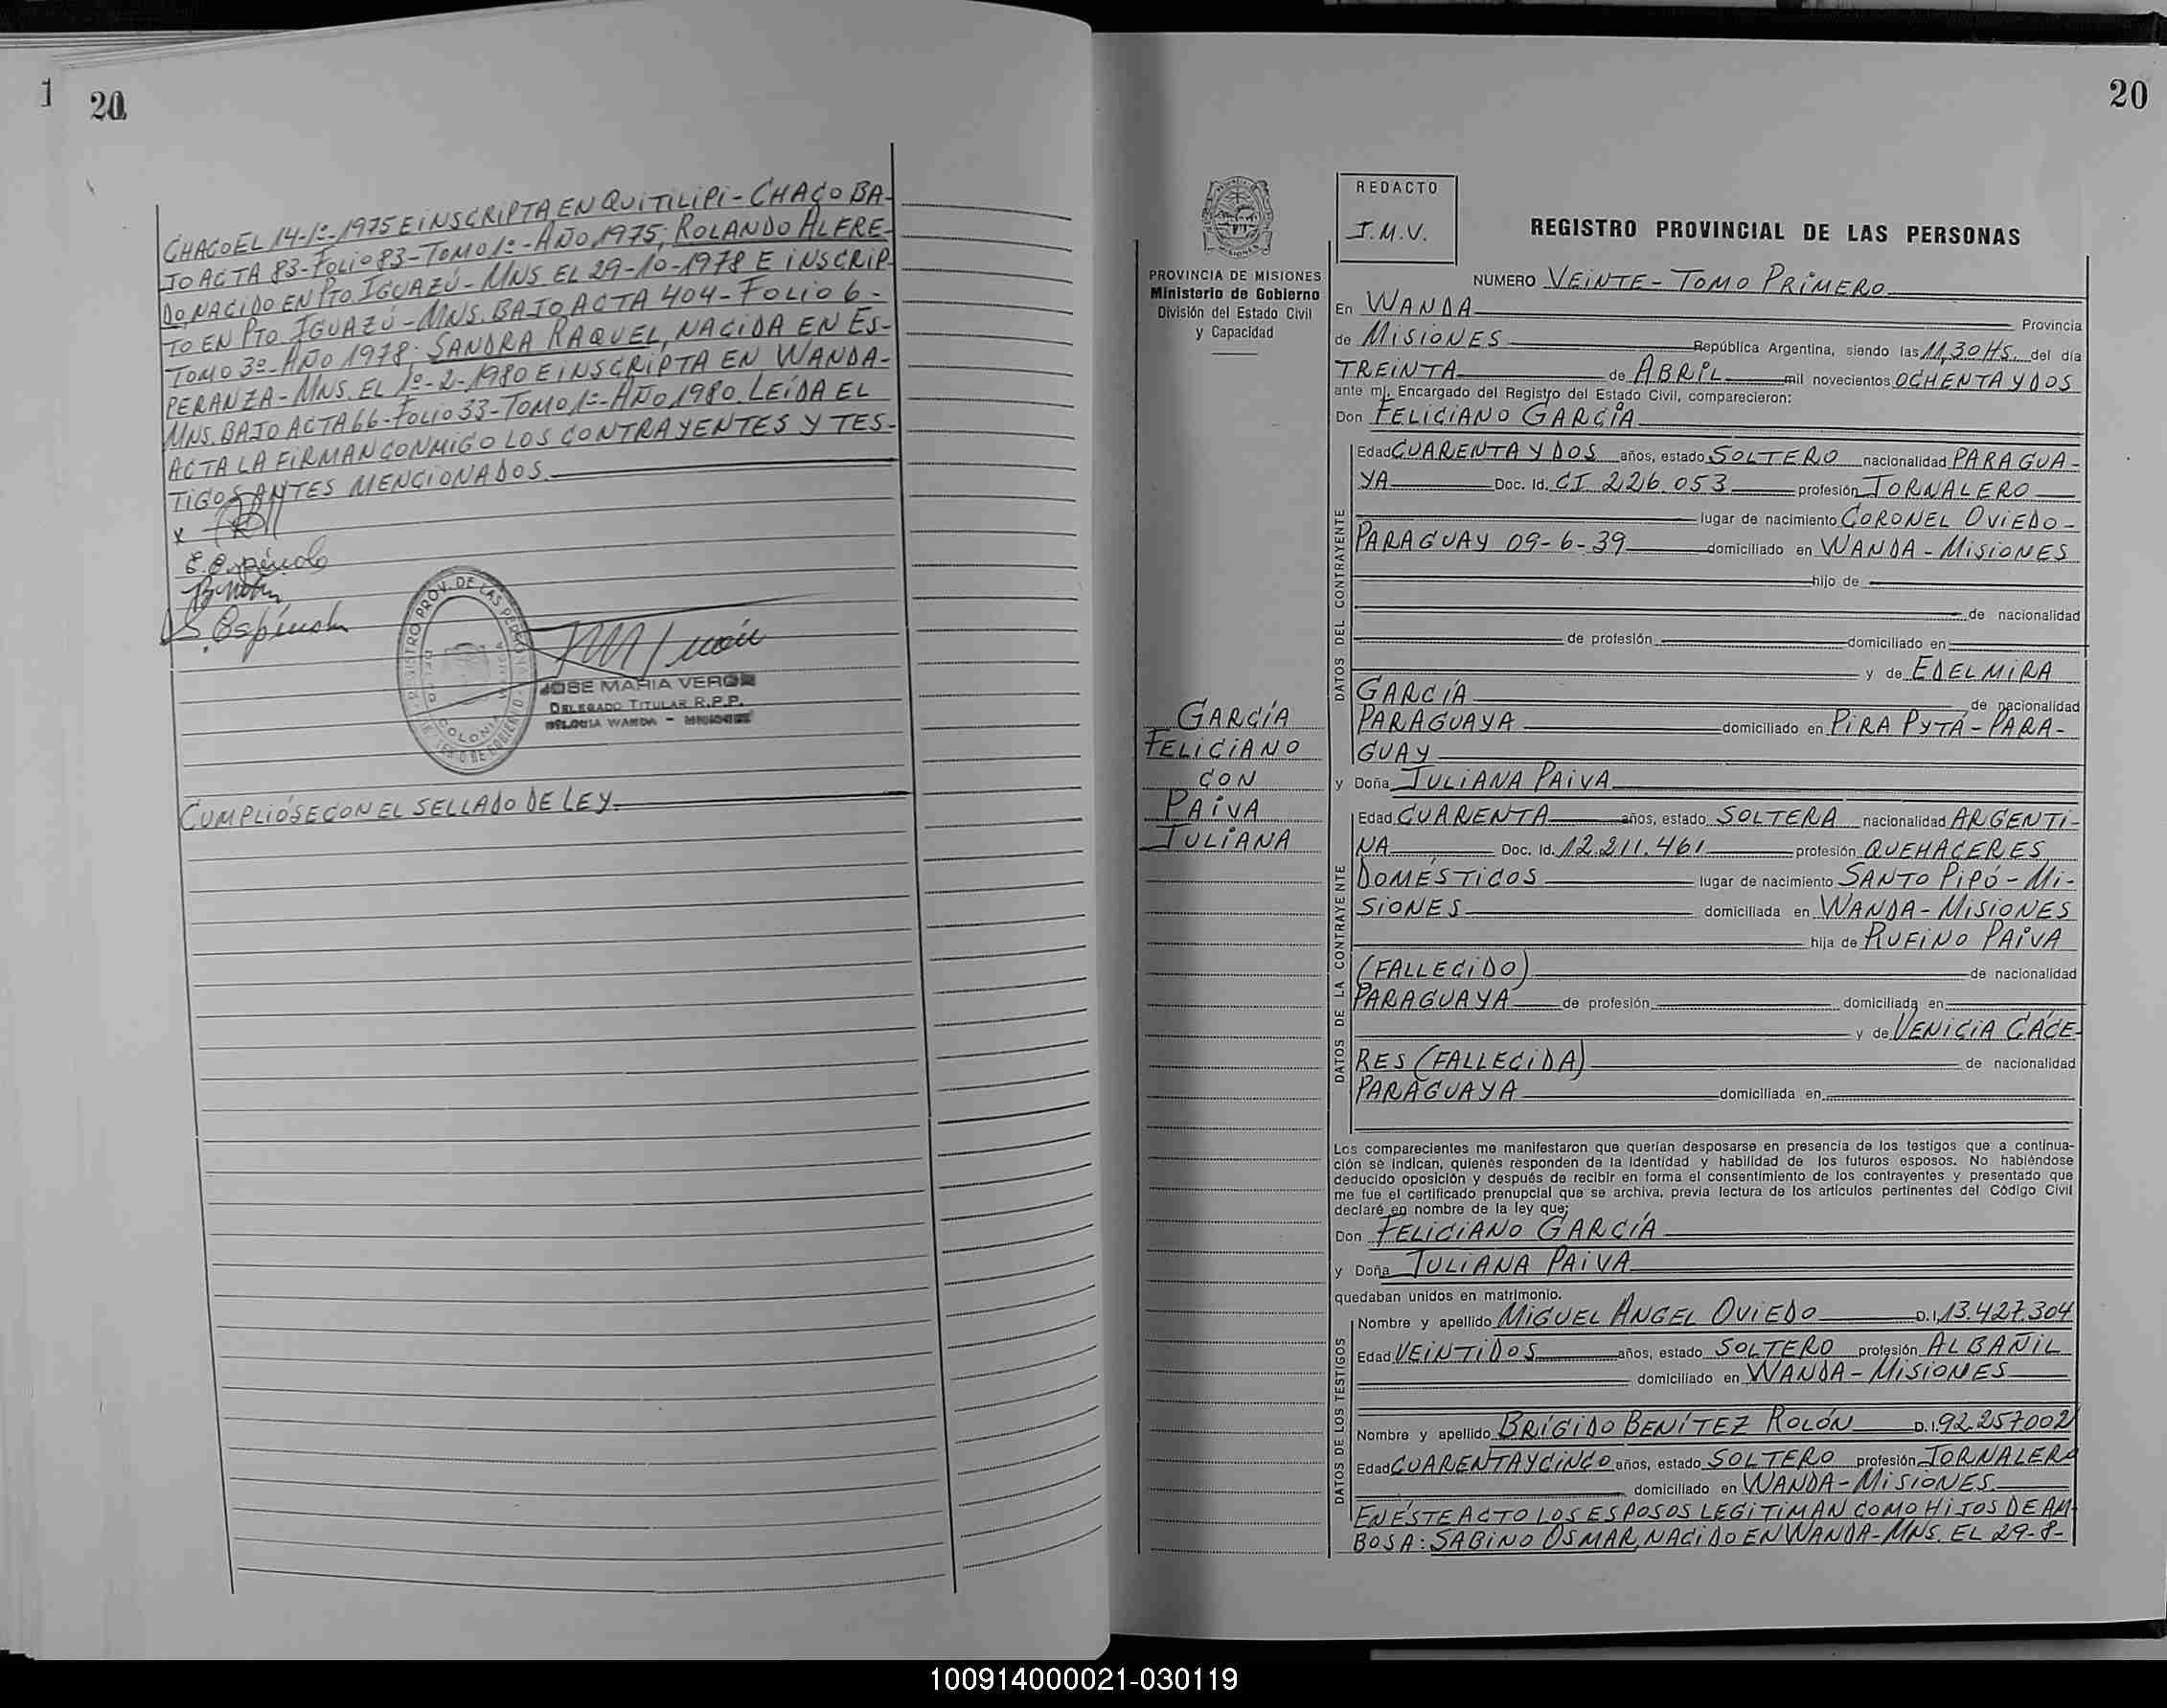 1
20
CHACO EL 14-1º-1975 E iNSCRIPTA EN QUiTiLiPi - CHACO BA-
JO ACTA 83 - FOLIO 83 - TOMO 1º - AÑO 1975; ROLANDO ALFRE-
DO, NACIDO EN PTO. IGUAZÚ - MNS. EL 29-10-1978 E iNSCRIP-
TO EN PTO. IGUAZÚ - MNS. BAJO ACTA 404 - FOLIO 6 -
TOMO 3º - AÑO 1978; SANDRA RAQUEL, NACIDA EN ES-
PERANZA - MNS. EL 1º-2-1980 E INSCRIPTA EN WANDA -
MNS. BAJO ACTA 66 - FOLIO 33 - TOMO 1º - AÑO 1980. LEÍDA EL
ACTA LA FIRMAN CONMIGO LOS CONTRAYENTES Y TES-
TIGOS ANTES MENCIONADOS
x
E. Espínola
S. Espínola
REGISTRO PROV. DE LAS PERSONAS
COLONIA
JOSE MARIA VERON
DELEGADO TITULAR R.P.P.
COLONIA WANDA - MISIONES
CUMPLIÓSE CON EL SELLADO DE LEY
20
PROVINCIA DE MISIONES
Ministerio de Gobierno
División del Estado Civil
y Capacidad
GARCÍA
FELICIANO
CON
PAIVA
JULIANA
REDACTO
J.M.V.
REGISTRO PROVINCIAL DE LAS PERSONAS
NUMERO VEINTE - TOMO PRIMERO
En WANDA Provincia
de MISIONES República Argentina, siendo las 11,30 HS. del día
TREINTA de ABRIL mil novecientos OCHENTA Y DOS
ante mí, Encargado del Registro del Estado Civil, comparecieron:
Don FELICIANO GARCÍA
DATOS DEL CONTRAYENTE
Edad CUARENTA Y DOS años, estado SOLTERO nacionalidad PARAGUA-
YA Doc. Id. CI 226.053 profesión JORNALERO
lugar de nacimiento CORONEL OVIEDO -
PARAGUAY 09-6-39 domiciliado en WANDA - MISIONES
hijo de
de nacionalidad
de profesión domiciliado en
y de EDELMIRA
GARCÍA de nacionalidad
PARAGUAYA domiciliado en PIRA PYTÁ - PARA-
GUAY
y Doña JULIANA PAIVA
DATOS DE LA CONTRAYENTE
Edad CUARENTA años, estado SOLTERA nacionalidad ARGENTI-
NA Doc. Id. 12.211.461 profesión QUEHACERES
DOMÉSTICOS lugar de nacimiento SANTO PIPÓ - MI-
SIONES domiciliada en WANDA - MISIONES
hija de RUFINO PAIVA
(FALLECIDO) de nacionalidad
PARAGUAYA de profesión domiciliada en
y de VENICIA CÁCE-
RES (FALLECIDA) de nacionalidad
PARAGUAYA domiciliada en
Los comparecientes me manifestaron que querían desposarse en presencia de los testigos que a continua-
ción se indican, quienes responden de la identidad y habilidad de los futuros esposos. No habiéndose
deducido oposición y después de recibir en forma el consentimiento de los contrayentes y presentado que
me fue el certificado prenupcial que se archiva, previa lectura de los artículos pertinentes del Código Civil
declaré en nombre de la ley que:
Don FELICIANO GARCÍA
y Doña JULIANA PAIVA
quedaban unidos en matrimonio.
DATOS DE LOS TESTIGOS
Nombre y apellido MIGUEL ANGEL OVIEDO D.I. 13.427.304
Edad VEINTIDOS años, estado SOLTERO profesión ALBAÑIL
domiciliado en WANDA - MISIONES
Nombre y apellido BRÍGIDO BENÍTEZ ROLÓN D.I. 92.257002
Edad CUARENTA Y CINCO años, estado SOLTERO profesión JORNALERO
domiciliado en WANDA - MISIONES
EN ÉSTE ACTO LOS ESPOSOS LEGITIMAN COMO HIJOS DE AM-
BOS A: SABINO OSMAR, NACIDO EN WANDA - MNS. EL 29-8-
100914000021-030119